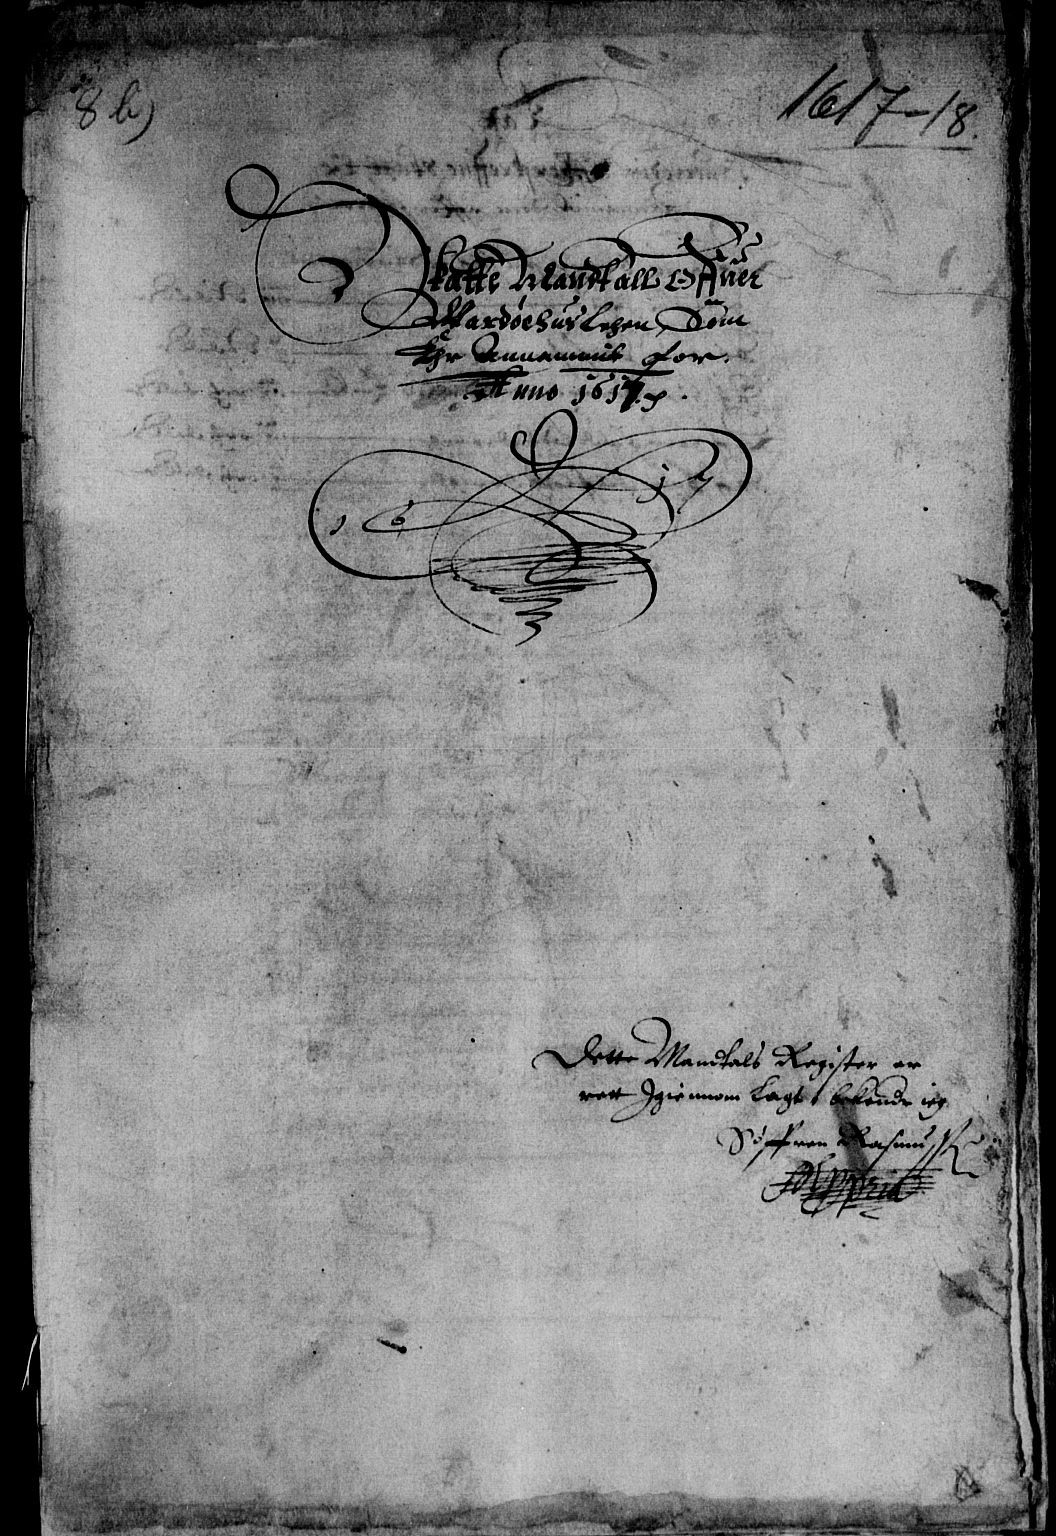 8 b)
1617-18.
Skatte Mandtall Offuer
Wardøehus Lehen, Som
Ehr Annammit for.
Anno 1617.
1617
Dette Mandtals Register er
rett Igiennom lagt, bekende ieg
Søffren Rasmuss